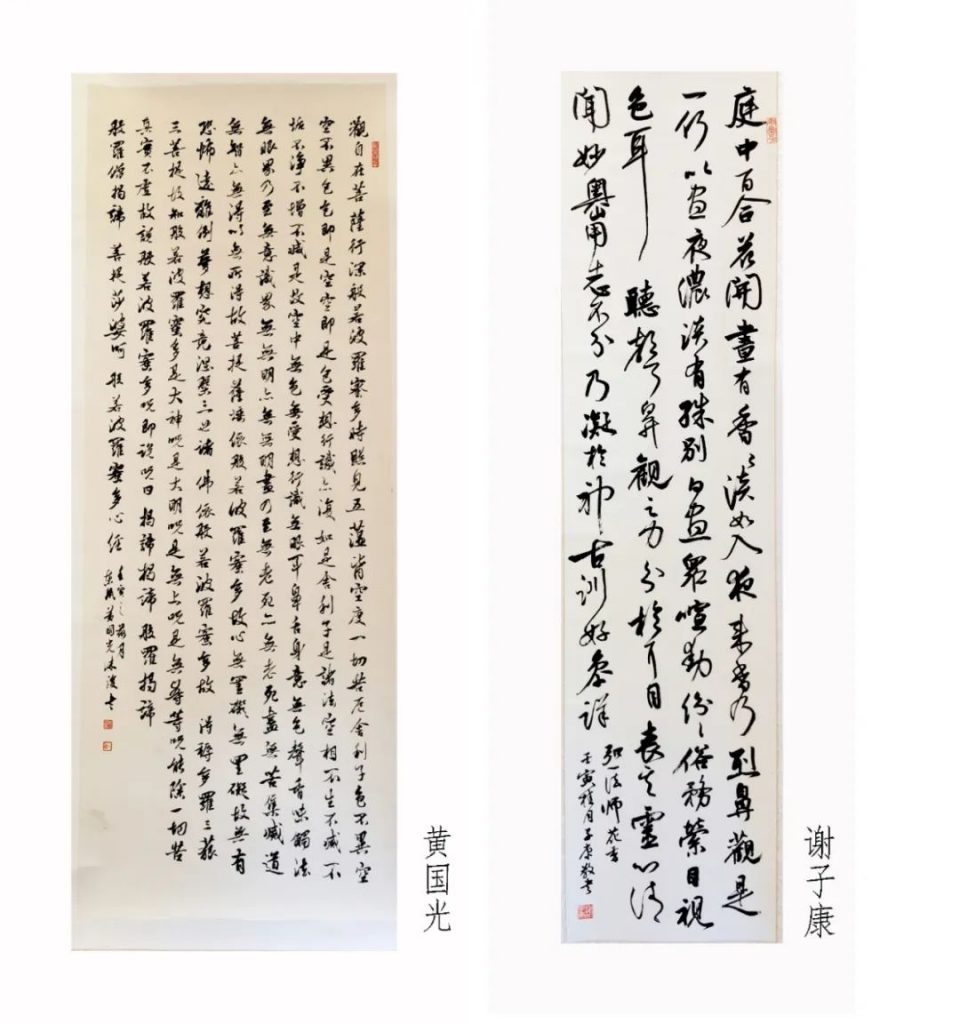 觀自在菩薩行深般若波羅蜜多時照見五蘊皆空度一切苦厄舍利子色不異空
空不異色色即是空空即是色受想行識亦復如是舍利子是諸法空相不生不滅不
垢不淨不增不減是故空中無色無受想行識無眼耳鼻舌身意無色聲香味觸法
無眼界乃至無意識界無無明亦無無明盡乃至無老死亦無老死盡無苦集滅道
無智亦無得以無所得故菩提薩埵依般若波羅蜜多故心無罣礙無罣礙故無有
恐怖遠離倒夢想究竟涅槃三世諸佛依般若波羅蜜多故 得耨多羅三藐
三菩提故知般若波羅蜜多是大神咒是大明咒是無上咒是無等等咒能除一切苦
真實不虛故說般若波羅蜜多咒即說咒曰揭諦揭諦般羅揭諦
般羅僧揭諦 菩提莎婆呵 般若波羅蜜多心經
壬寅之荷月
黄国光
庭中百合花開晝有香香淡如入夜來香乃烈鼻觀是
一何以晝夜濃淡有殊別白晝眾喧動紛紛俗務縈目視
色耳聽聲鼻觀之力分於耳目喪其靈心清
聞妙香用志不分乃凝於神古訓好參詳
弘一法師花香
壬寅桂月子康敬書
谢子康